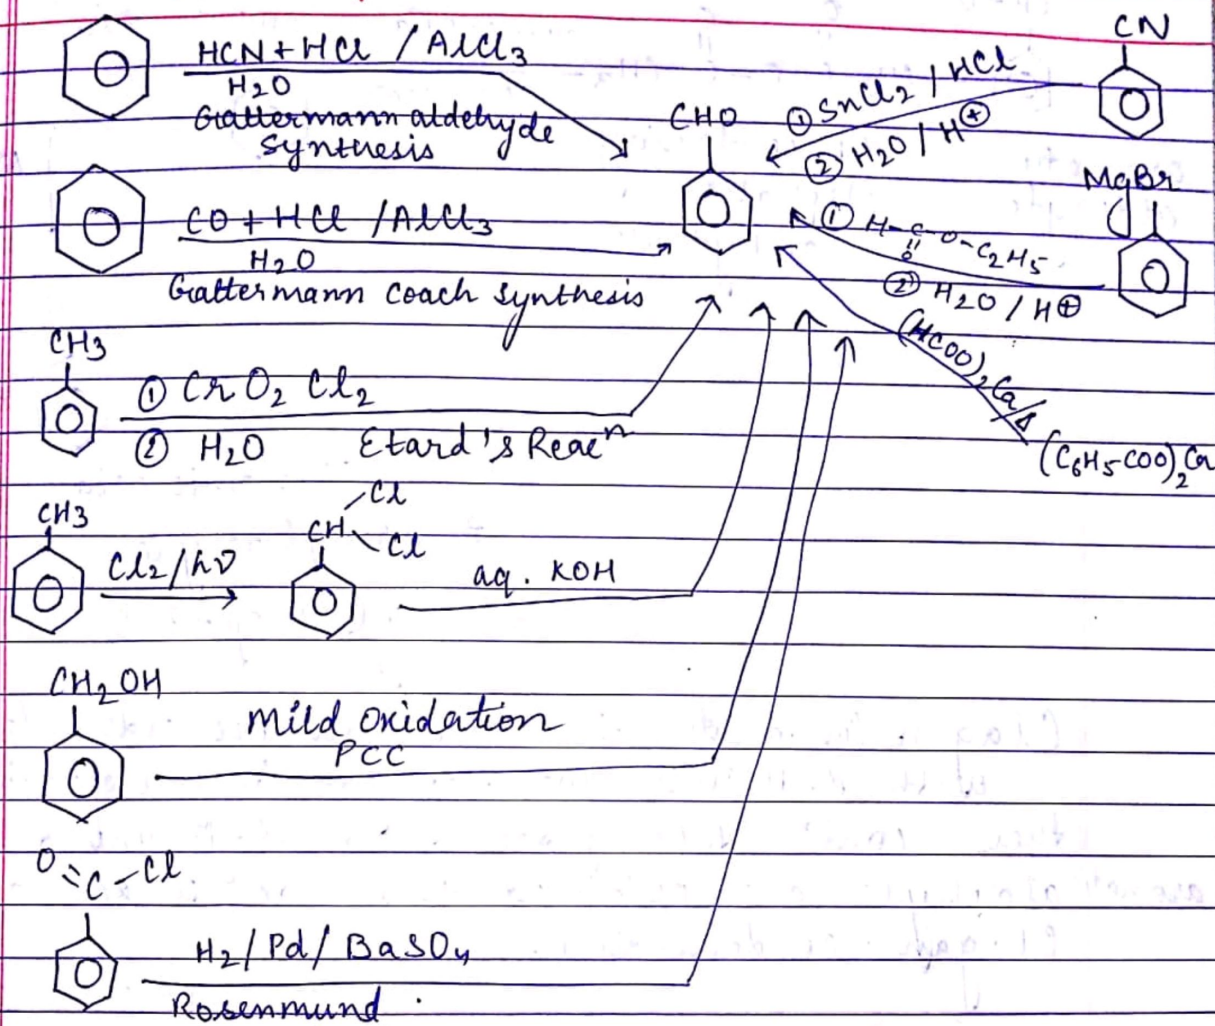 HCN + HCl / AlCl3
H2O
Gattermann aldehyde
Synthesis
CHO
① SnCl2 / HCl
② H2O / H⊕
CN
CO + HCl / AlCl3
H2O
Gattermann Coach Synthesis
① H-C-O-C2H5
O
② H2O / H⊕
MgBr
(HCOO)2Ca/Δ
(C6H5-COO)2Ca
CH3
① CrO2Cl2
② H2O Etard's Reacn
CH3
Cl2/hν
Cl
CH
Cl
aq. KOH
CH2OH
Mild Oxidation
PCC
O=C-Cl
H2/Pd/BaSO4
Rosenmund.